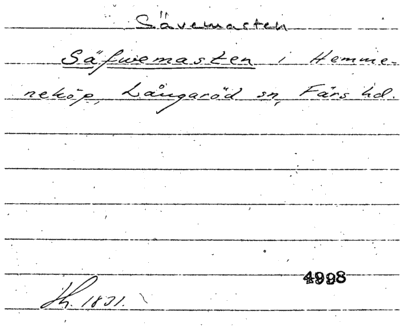 Sävemasten
Säfwemasten i Hemme-
neköp, Långaröd sn, Färs hd.
4998
Th. 1831.